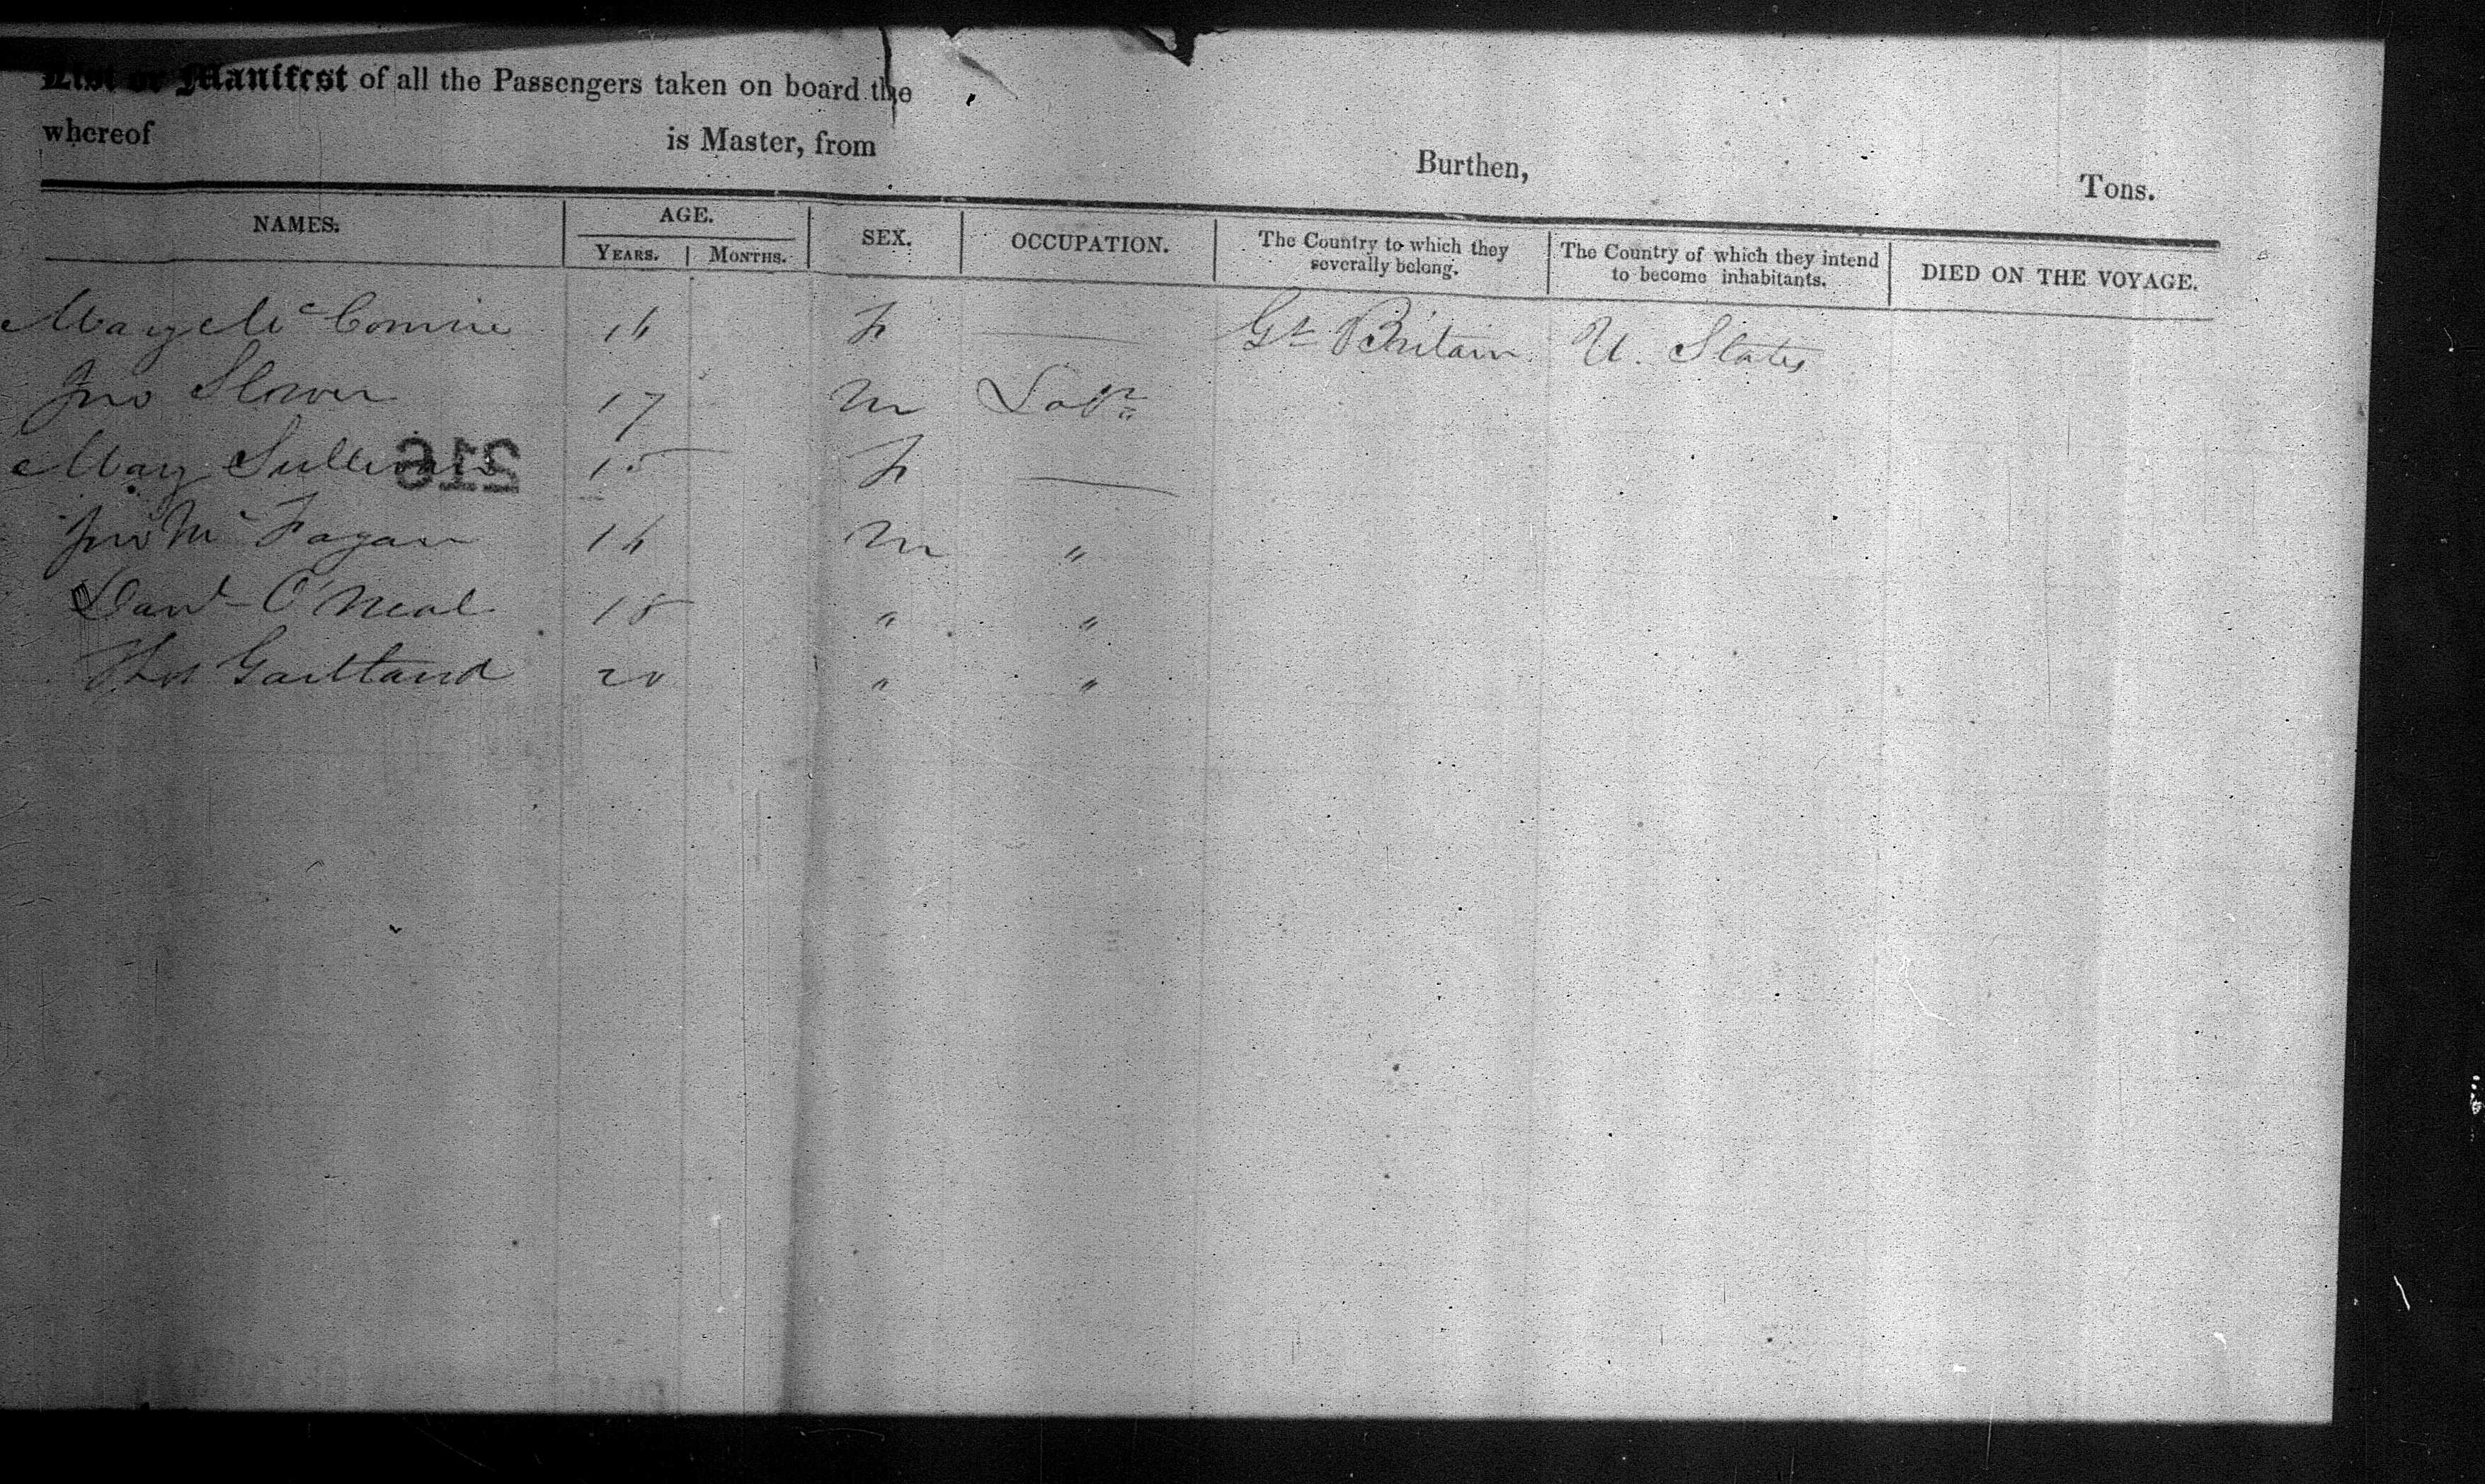 List or Manifest of all the Passengers taken on board the
whereof is Master, from Burthen, Tons.
NAMES. AGE. SEX. OCCUPATION. The Country to which they severally belong. The Country of which they intend to become inhabitants. DIED ON THE VOYAGE.
YEARS. MONTHS.
Mary Mc 16 F Gt Britain U. States
Jno Slower 17 M Labr
Mary Sullivan 15 F
216
Jno Mc Fagan 16 M "
Danl O'Neal 18 " "
Thos Gartland 20 " "